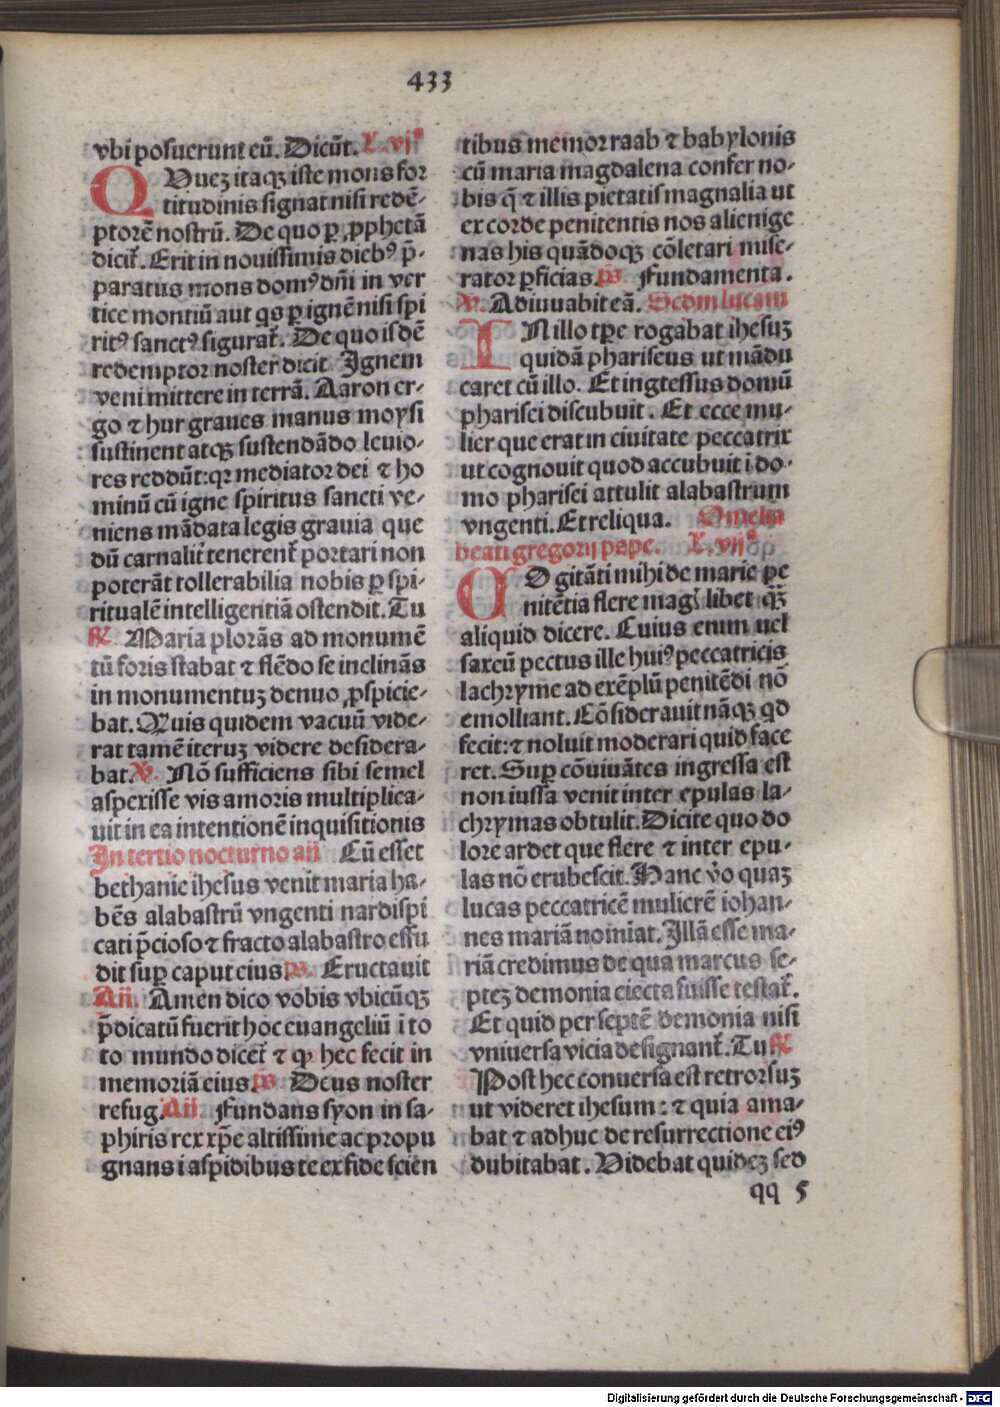 433
vbi posuerunt eū. Dicūt. L. vjª
QVuez itaqꝫ iste mons for
titudinis signat nisi redē-
ptorē nostrū. De quo ꝑ ꝓphetā
dicit̄. Erit in nouissimis diebꝰ p̄-
paratus mons domꝰ dn̄i in ver
tice montiū aut qͥs ꝑ ignē nisi spi
ritꝰ sanctꝰ sigurat̄. De quo isdē
redemptor noster dicit. Ignem
veni mittere in terrā. Aaron er-
go ⁊ hur graues manus moysi
sustinent atqꝫ sustendādo leuio-
res reddūt: qꝛ mediator dei ⁊ ho
minū cū igne spiritus sancti ve-
niens mādata legis grauia que
dū carnalit̄ tenerent̄ portari non
poterāt tollerabilia nobis ꝑ spi-
ritualē intelligentiā ostendit. Tu
℟. Maria plorās ad monumē
tū foris stabat ⁊ flēdo se inclinās
in monumentuꝫ denuo ꝓspicie-
bat. Quis quidem vacuū vide-
rat tamē iteruꝫ videre desidera-
bat. ℣. Nō sufficiens sibi semel
aspexisse vis amoris multiplica-
uit in ea intentionē inquisitionis
In tertio nocturno añ Cū esset
bethanie ihesus venit maria ha-
bēs alabastrū vngenti nardispi
cati p̄cioso ⁊ fracto alabastro effu
dit suꝑ caput eius ps. Eructauit
Añ. Amen dico vobis vbicūqꝫ
p̄dicatū fuerit hoc euangeliū i to
to mundo dicet̄ ⁊ ꝙ hec fecit in
memoriā eius. ps. Deus noster
refug. Añ. Fundans syon in sa-
phiris rex xp̄e altissime ac propu
gnans iaspidibus te ex fide scien
tibus memor raab ⁊ babylonis
cū maria magdalena confer no-
bis q̄ ⁊ illis pietatis magnalia ut
ex corde penitentis nos alienige
nas his quādoqꝫ cōletari mise-
rator ꝑficias ps. Fundamenta.
℣. Adiuuabit eā. Scdm lucam
IN illo tꝑe rogabat ihesuꝫ
quidā phariseus ut mādu
caret cū illo. Et ingtessus domū
pharisei discubuit. Et ecce mu-
lier que erat in ciuitate peccatrix
ut cognouit quod accubuit i do-
mo pharisei attulit alabastrum
vngenti. Et reliqua. Omelia
beati gregorij pape. L. vijª
COgitāti mihi de marie pe
nitētia flere mag libet qꝫ̄
aliquid dicere. Cuius enim uel
saxeū pectus ille huiꝰ peccatricis
lachryme ad exēplū penitēdi nō
emolliant. Cōsiderauit nāqꝫ qd
fecit: ⁊ noluit moderari quid face
ret. Suꝑ cōuiuātes ingressa est
non iussa venit inter epulas la-
chrymas obtulit. Dicite quo do
lore ardet que flere ⁊ inter epu-
las nō erubescit. Hanc v̊o quaꝫ
lucas peccatricē mulierē iohan-
nes mariā noīniat. Illā esse ma-
riā credimus de qua marcus se-
pteꝫ demonia eiecta fuisse testat̄.
Et quid per septē demonia nisi
vniuersa vicia designant̄. Tu ℟
Post hec conuersa est retrorsuꝫ
ut videret ihesum: ⁊ quia ama-
bat ⁊ adhuc de resurrectione eiꝰ
dubitabat. Videbat quideꝫ sed
qq 5
Digitalisierung gefördert durch die Deutsche Forschungsgemeinschaft - DFG